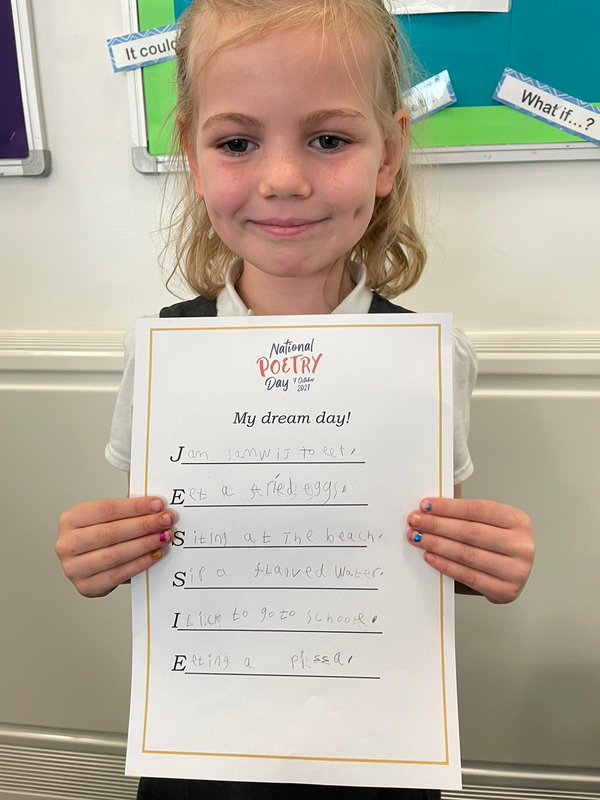 It could
What if...?
National
POETRY
Day 7 October
2021
My dream day!
Jam samwij to eet.
Eet a fried eggs.
Siting at The beach.
Sip a flaived water.
I lick to go to schoole.
Eeting a pissa.